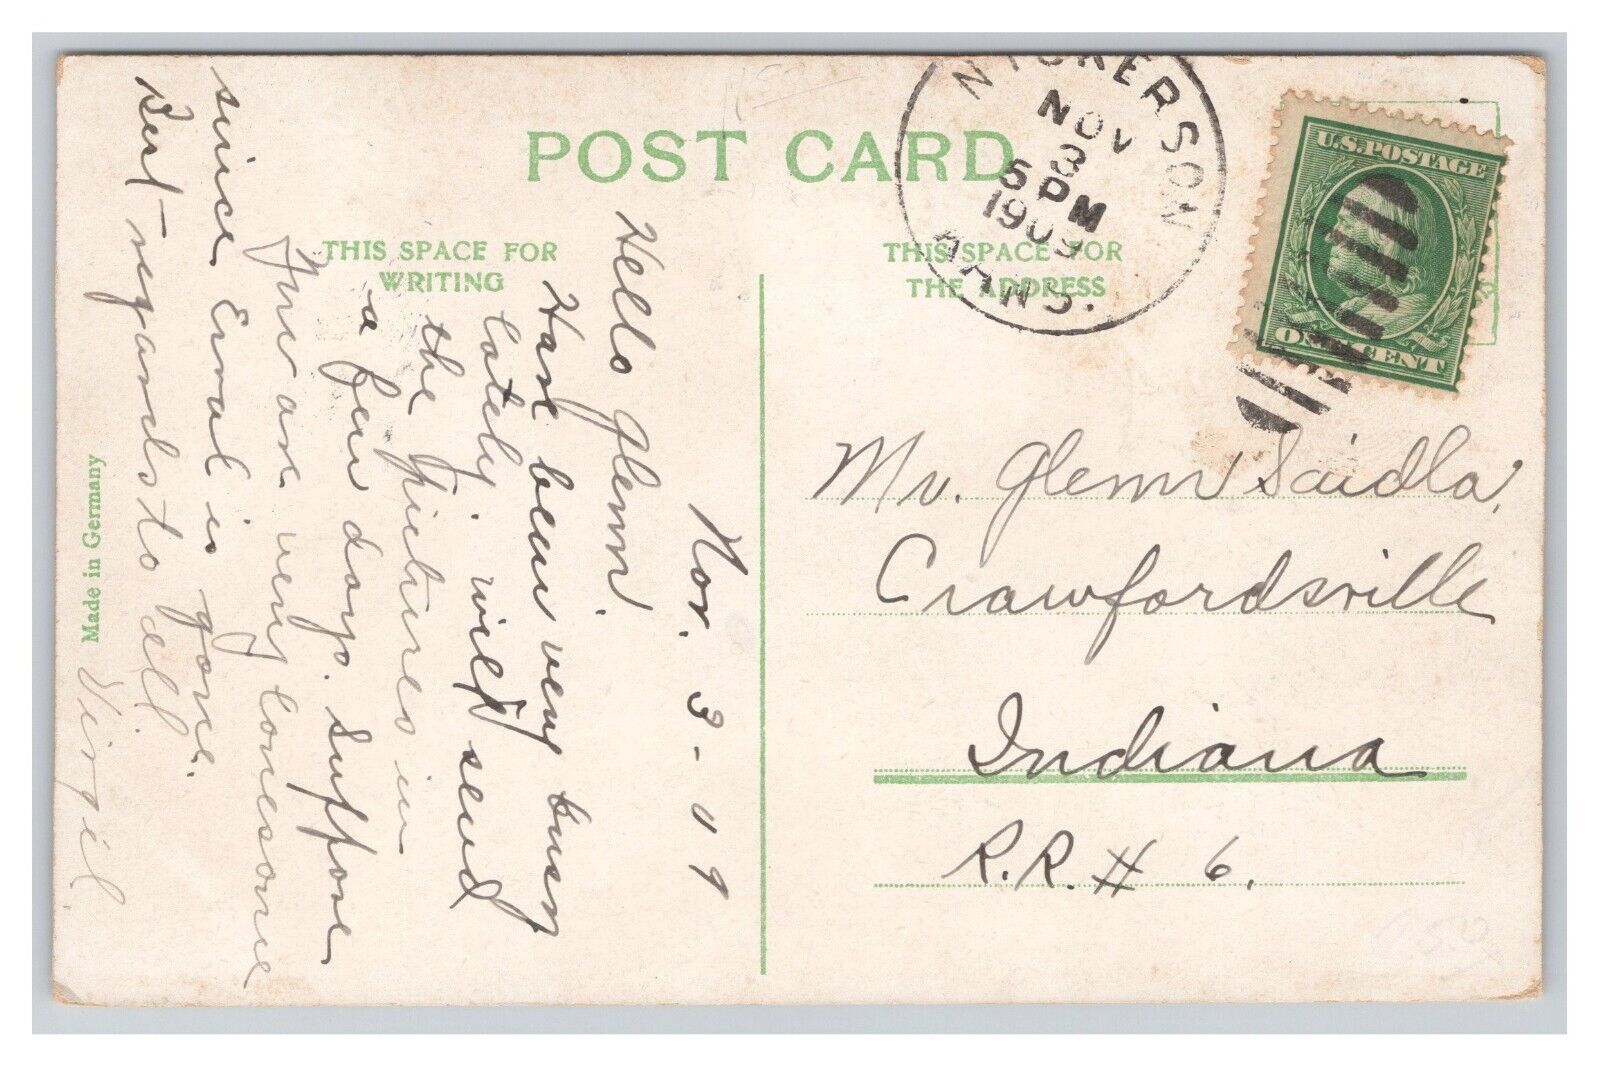 POST CARD
THIS SPACE FOR
WRITING
THIS SPACE FOR
THE ADDRESS
NICKERSON
NOV
3
5 PM
1909
KANS.
U.S. POSTAGE
ONE CENT
Nov. 3 - 09
Hello Glenn.
Have been very busy
lately. will send
the pictures in
a few days. Suppose
you are very lonesome
since Erval is gone.
But regards to all
Virgil.
Made in Germany
Mr. Glenn Saidla,
Crawfordsville
Indiana
R.R. # 6.